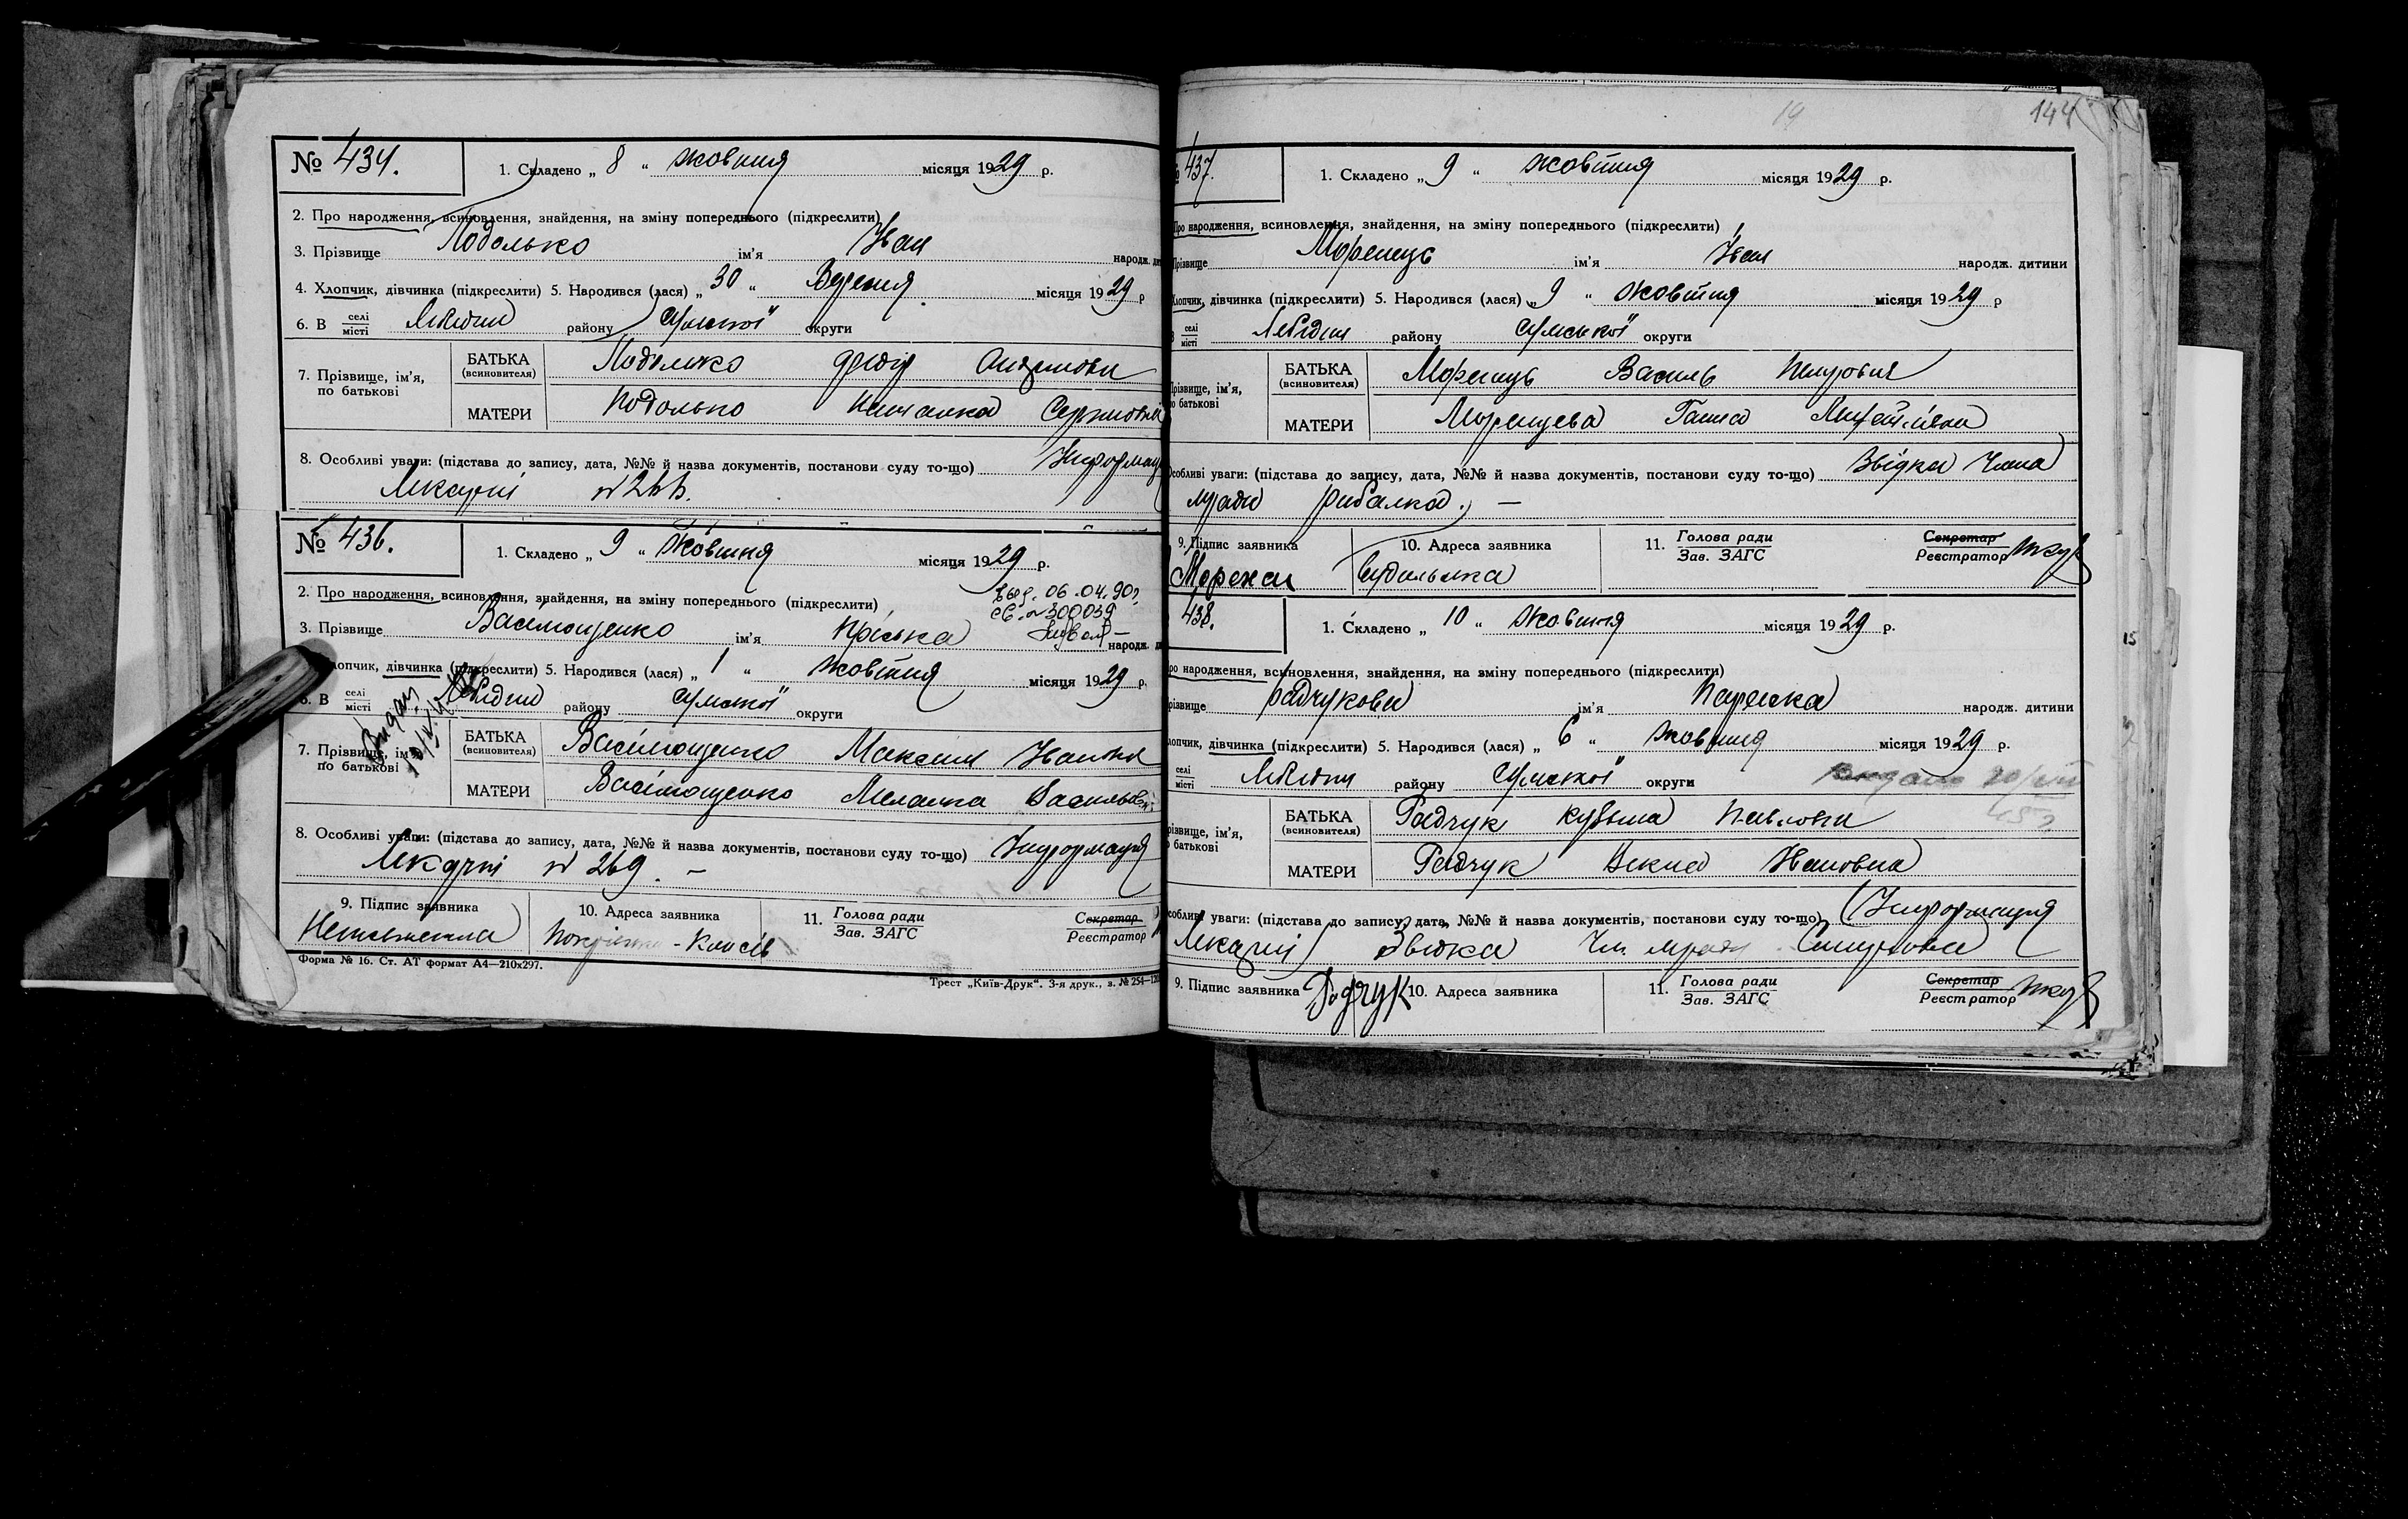 № 434.
1. Складено „ 8 “ жовтня місяця 1929 р.
2. Про народження, всиновлення, знайдення, на зміну попереднього (підкреслити)
3. Прізвище Подолько ім'я Іван народж. ди
4. Хлопчик, дівчинка (підкреслити) 5. Народився (лася) „ 30 “ Вересня місяця 1929 р
6. В селі місті Лебедин району Сумської округи
7. Прізвище, ім'я, по батькові
БАТЬКА (всиновителя) Подолько
МАТЕРИ Подолько
8. Особливі уваги: (підстава до запису, дата, №№ й назва документів, постанови суду то-що) Информац
Лікарні
№ 436.
1. Складено „ 9 “ Жовтня місяця 1929 р.
2. Про народження, всиновлення, знайдення, на зміну попереднього (підкреслити)
выд. 06.04.90г.
св. № 300039
3. Прізвище Васімощенко ім'я Пріська народж. ди
Хлопчик, дівчинка (підкреслити) 5. Народився (лася) „ 1 “ жовтня місяця 1929 р.
6. В селі місті Лебедин району Сумської округи
7. Прізвище, ім'я, по батькові
БАТЬКА (всиновителя) Васімощенко Максим Іванович
МАТЕРИ Васімощенко Меланка Васильовн
8. Особливі уваги: (підстава до запису, дата, №№ й назва документів, постанови суду то-що) Информация
Лікарні № 269. –
9. Підпис заявника
Неписьменна
10. Адреса заявника
11. Голова ради Зав. ЗАГС
Секретар Реєстратор
Форма № 16. Ст. АТ формат А4—210х297.
Трест „Київ-Друк“. 3-я друк., з. № 254—
144
19
437.
1. Складено „ 9 “ жовтня місяця 1929 р.
Про народження, всиновлення, знайдення, на зміну попереднього (підкреслити)
Прізвище Моренець ім'я Іван народж. дитини
Хлопчик, дівчинка (підкреслити) 5. Народився (лася) „ 9 “ жовтня місяця 1929 р
селі місті Лебедин району Сумської округи
Прізвище, ім'я, по батькові
БАТЬКА (всиновителя) Моренець Василь
МАТЕРИ Моренцева Ганна Михайлівна
Особливі уваги: (підстава до запису, дата, №№ й назва документів, постанови суду то-що) Звідка Члена
рибалка. –
9. Підпис заявника
Моренец
10. Адреса заявника
11. Голова ради Зав. ЗАГС
Секретар Реєстратор
438.
1. Складено „ 10 “ Жовтня місяця 1929 р.
Про народження, всиновлення, знайдення, на зміну попереднього (підкреслити)
Прізвище Радчукова ім'я Параска народж. дитини
Хлопчик, дівчинка (підкреслити) 5. Народився (лася) „ 6 “ жовтня місяця 1929 р.
селі місті Лебедин району Сумської округи
Прізвище, ім'я, по батькові
БАТЬКА (всиновителя) Радчук Кузьма Павлович
МАТЕРИ Радчук Векла Івановна
Особливі уваги: (підстава до запису, дата, №№ й назва документів, постанови суду то-що) (Информация
Лікарні) Звідка Чл.
9. Підпис заявника Радчук 10. Адреса заявника
11. Голова ради Зав. ЗАГС
Секретар Реєстратор